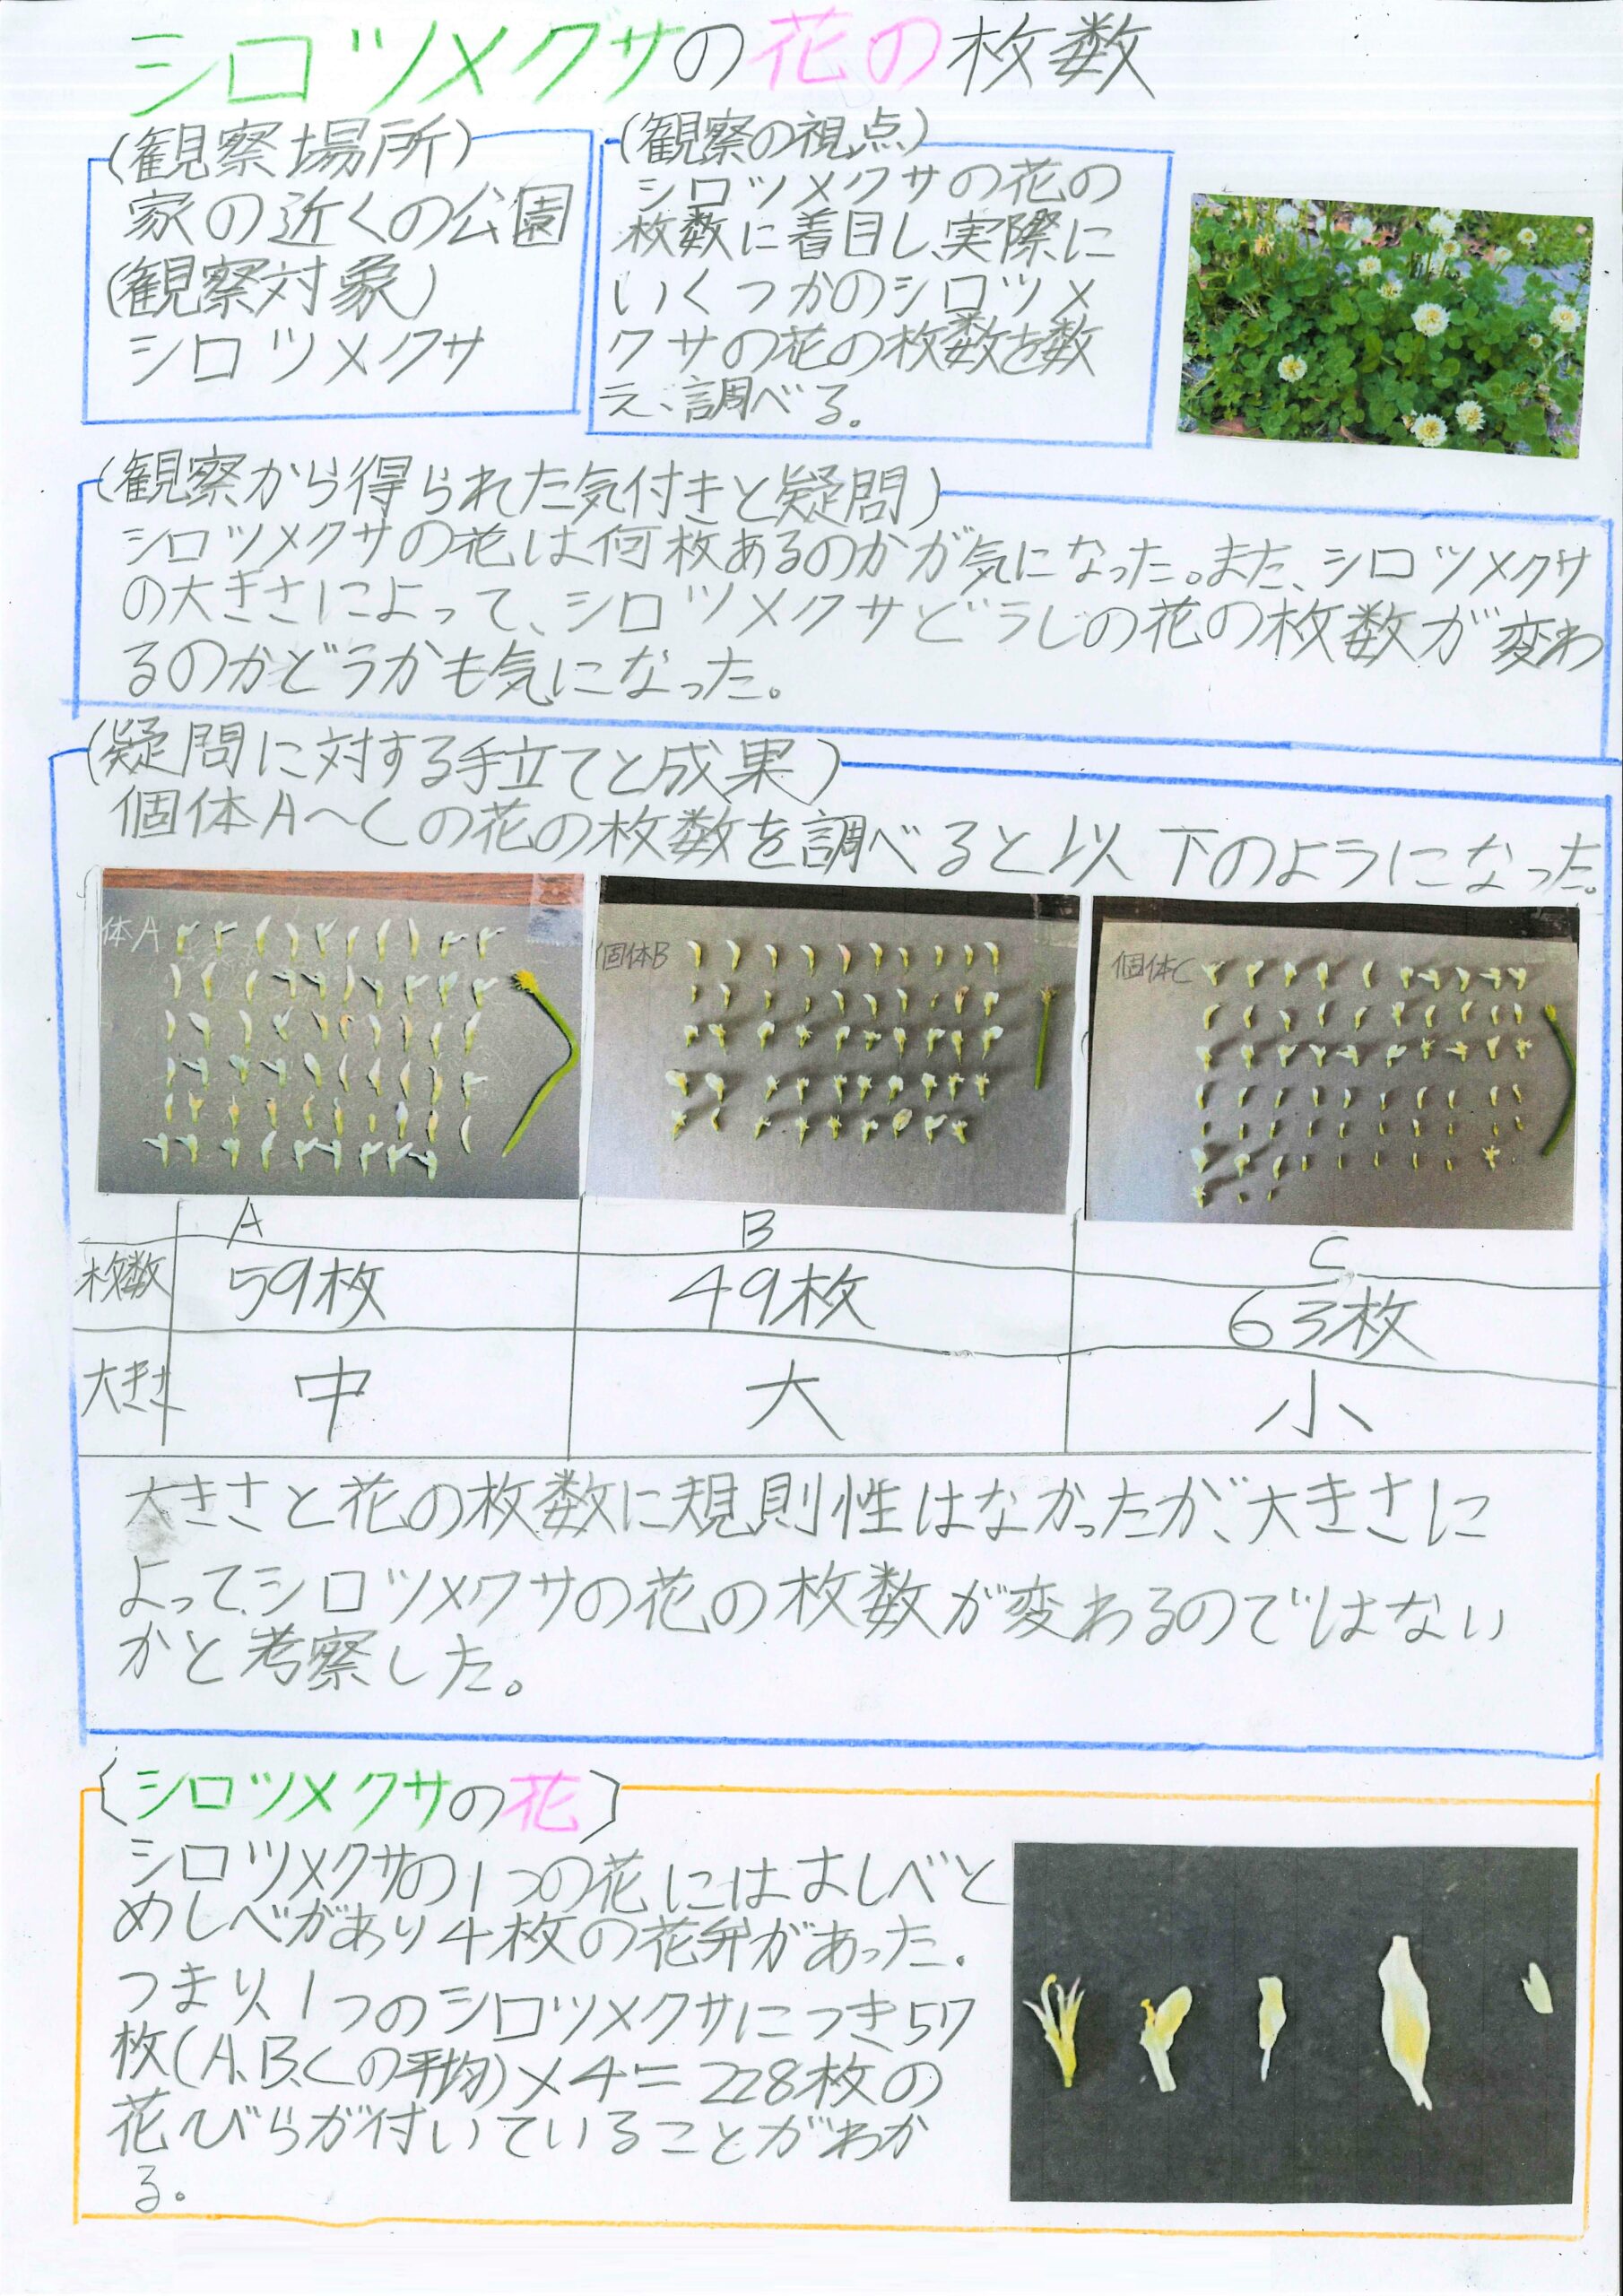 シロツメクサの花の枚数
(観察場所)
家の近くの公園
(観察対象)
シロツメクサ
(観察の視点)
シロツメクサの花の
枚数に着目し、実際に
いくつかのシロツメ
クサの花の枚数を数
え、調べる。
(観察から得られた気付きと疑問)
シロツメクサの花は何枚あるのかが気になった。また、シロツメクサ
の大きさによって、シロツメクサどうしの花の枚数が変わ
るのかどうかも気になった。
(疑問に対する手立てと成果)
個体A〜Cの花の枚数を調べると以下のようになった。
体A
個体B
個体C
A B C
枚数 59枚 49枚 63枚
大きさ 中 大 小
大きさと花の枚数に規則性はなかったが、大きさに
よって、シロツメクサの花の枚数が変わるのではない
かと考察した。
(シロツメクサの花)
シロツメクサの1つの花にはおしべと
めしべがあり4枚の花弁があった。
つまり、1つのシロツメクサにつき57
枚(A、B、Cの平均)×4=228枚の
花びらが付いていることがわか
る。